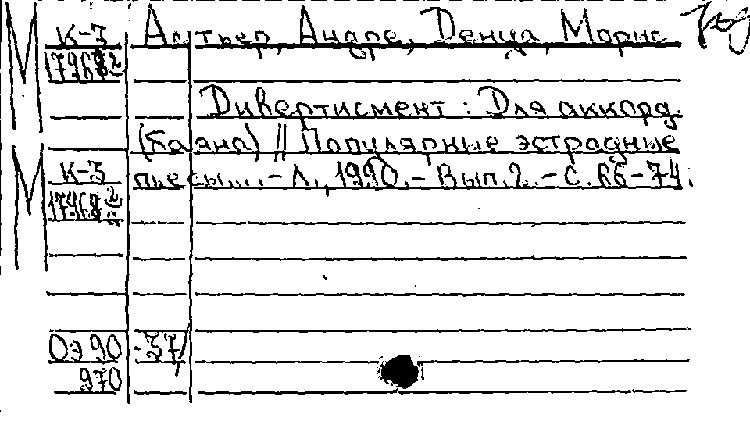 К-3 Астьер, Андре, Деница, Морис
Дивертисмент: Для аккорд.
(баяна) // Популярные эстрадные
К-3 пьесы... - Л., 1990. - Вып. 2. - С. 66-74.
Оэ 90 -37/
970